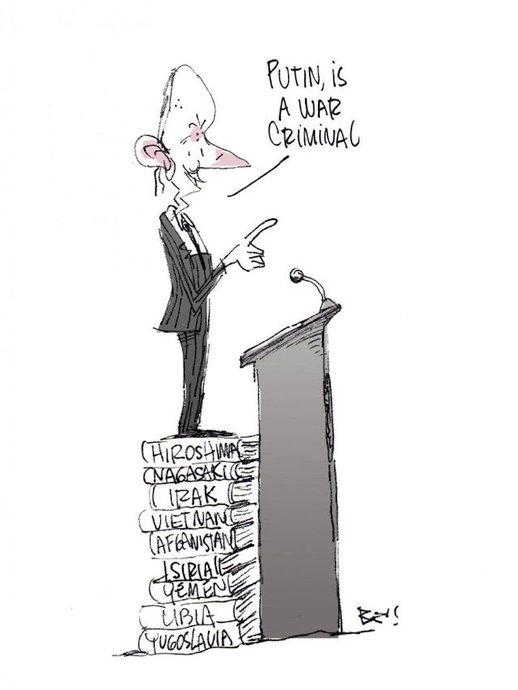 PUTIN, iS
A WAR
CRiMiNAL
HIROSHIMA
NAGASAKi
IRAK
VIETNAN
AFGANISTAN
SIRIA
YEMEN
LIBIA
YUGOSLAVIA